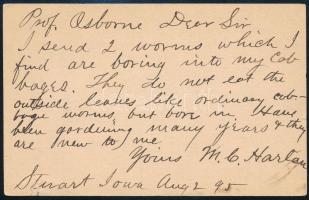 Prof. Osborne Dear Sir
I send 2 worms which I
find are boring into my Cab
bages. They do not eat the
outside leaves like ordinary cab-
bage worms, but bore in. Have
been gardening many years & they
are new to me
Yours M. C. Hartan
Stuart Iowa Aug 2 95